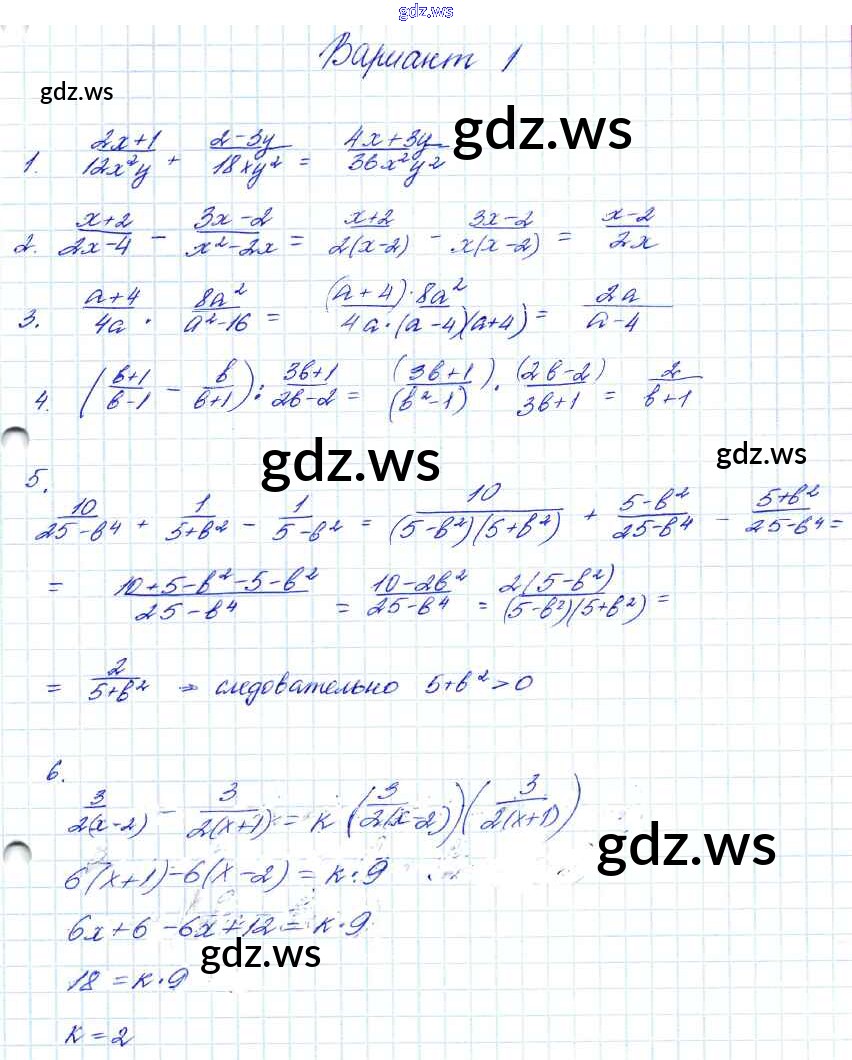 gdz.ws
Вариант 1
gdz.ws
gdz.ws
1. (2x+1)/(12x²y) + (2-3y)/(18xy²) = (4x+3y)/(36x²y²)
2. (x+2)/(2x-4) - (3x-2)/(x²-2x) = (x+2)/(2(x-2)) - (3x-2)/(x(x-2)) = (x-2)/(2x)
3. (a+4)/(4a) · (8a²)/(a²-16) = ((a+4)·8a²)/(4a·(a-4)(a+4)) = (2a)/(a-4)
4. ((b+1)/(b-1) - b/(b+1)) : (3b+1)/(2b-2) = ((3b+1)/(b²-1)) · ((2b-2)/(3b+1)) = 2/(b+1)
gdz.ws
gdz.ws
5.
10/(25-b⁴) + 1/(5+b²) - 1/(5-b²) = 10/((5-b²)(5+b²)) + (5-b²)/(25-b⁴) - (5+b²)/(25-b⁴) =
= (10+5-b²-5-b²)/(25-b⁴) = (10-2b²)/(25-b⁴) = (2(5-b²))/((5-b²)(5+b²)) =
= 2/(5+b²) ⇒ следовательно 5+b²>0
6.
3/(2(x-2)) - 3/(2(x+1)) = k (3/(2(x-2)))(3/(2(x+1)))
gdz.ws
6(x+1)-6(x-2) = k·9
6x+6-6x+12 = k·9
gdz.ws
18 = k·9
k = 2